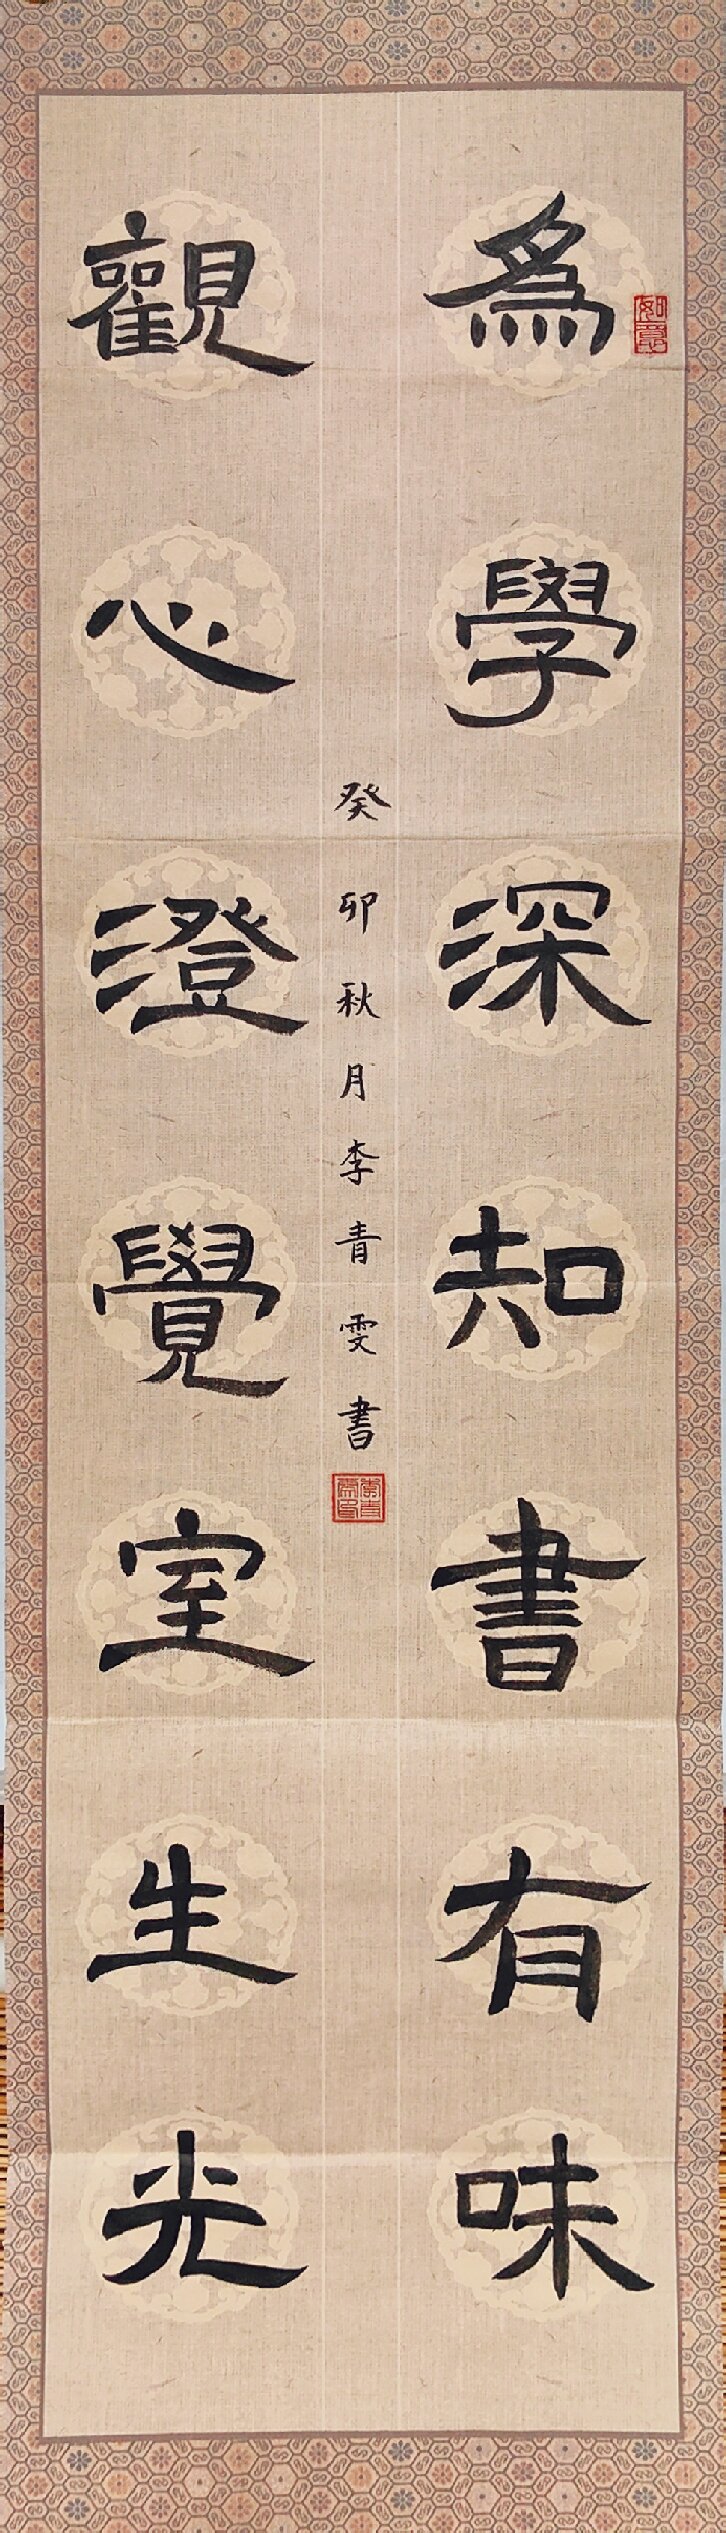 為學深知書有味
觀心澄覺室生光
癸卯秋月李青雯書
如意